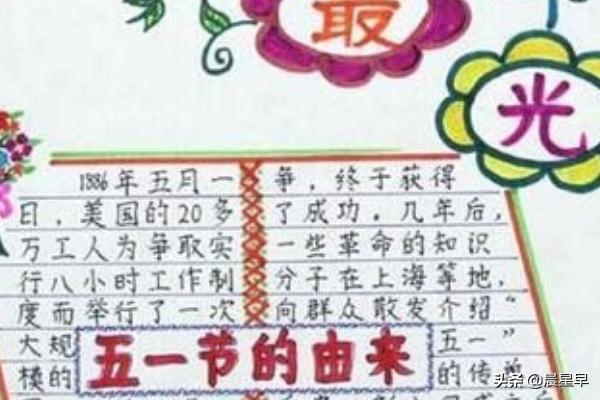 最
光
1886年五月一
日，美国的20多
万工人为争取实
行八小时工作制
度而举行了一次
大规
模的
争，终于获得
了成功。几年后，
一些革命的知识
分子在上海等地，
向群众散发介绍“
五一”
的传单
五一节的由来
头条 @晨星早